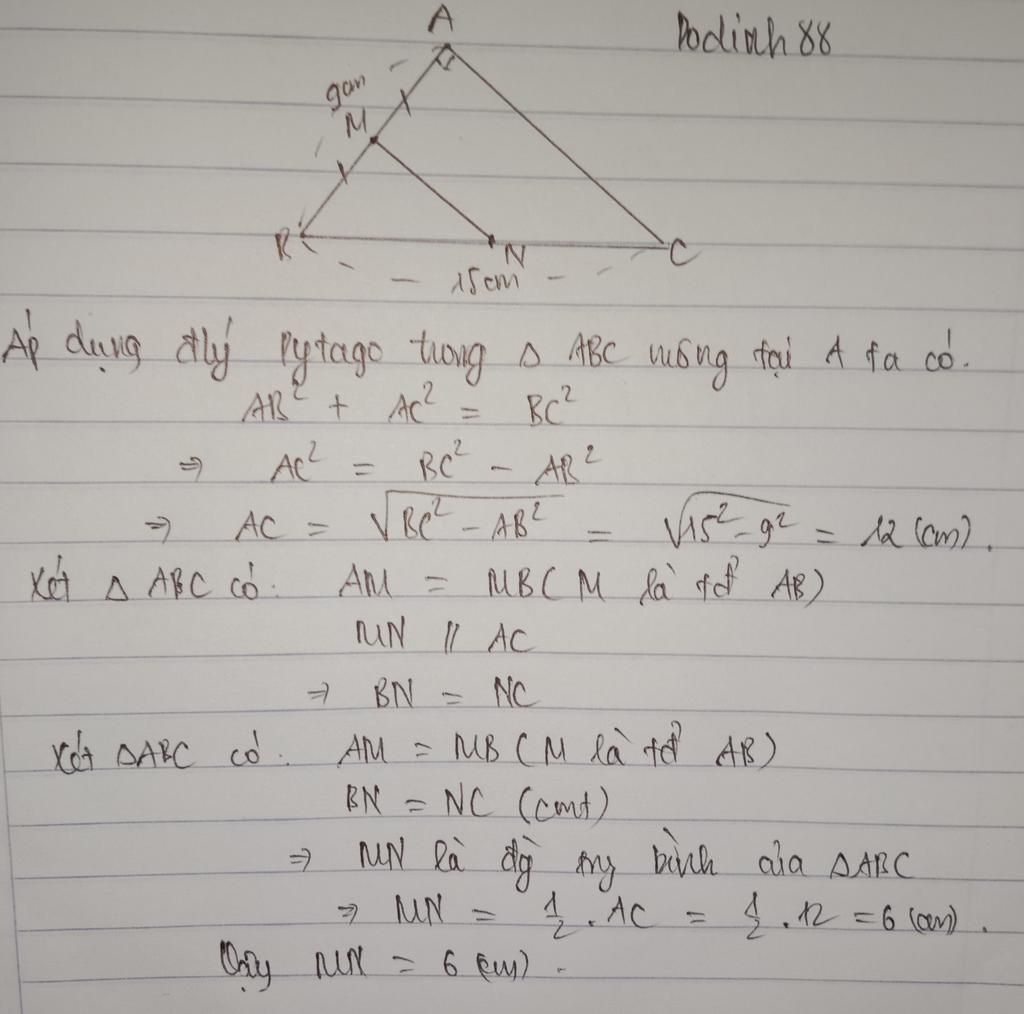 A
Dodinh 88
9cm
M
B
N
C
15cm
Áp dụng đlý Pytago trong Δ ABC vuông tại A ta có.
AB² + AC² = BC²
⇒ AC² = BC² - AB²
⇒ AC = √BC² - AB² = √15² - 9² = 12 (cm).
Xét Δ ABC có: AM = MB ( M là tđ AB)
MN // AC
⇒ BN = NC
Xét ΔABC có: AM = MB ( M là tđ AB)
BN = NC (cmt)
⇒ MN là đg trg bình của ΔABC
⇒ MN = 1/2 . AC = 1/2 . 12 = 6 (cm).
Vậy MN = 6 (cm).